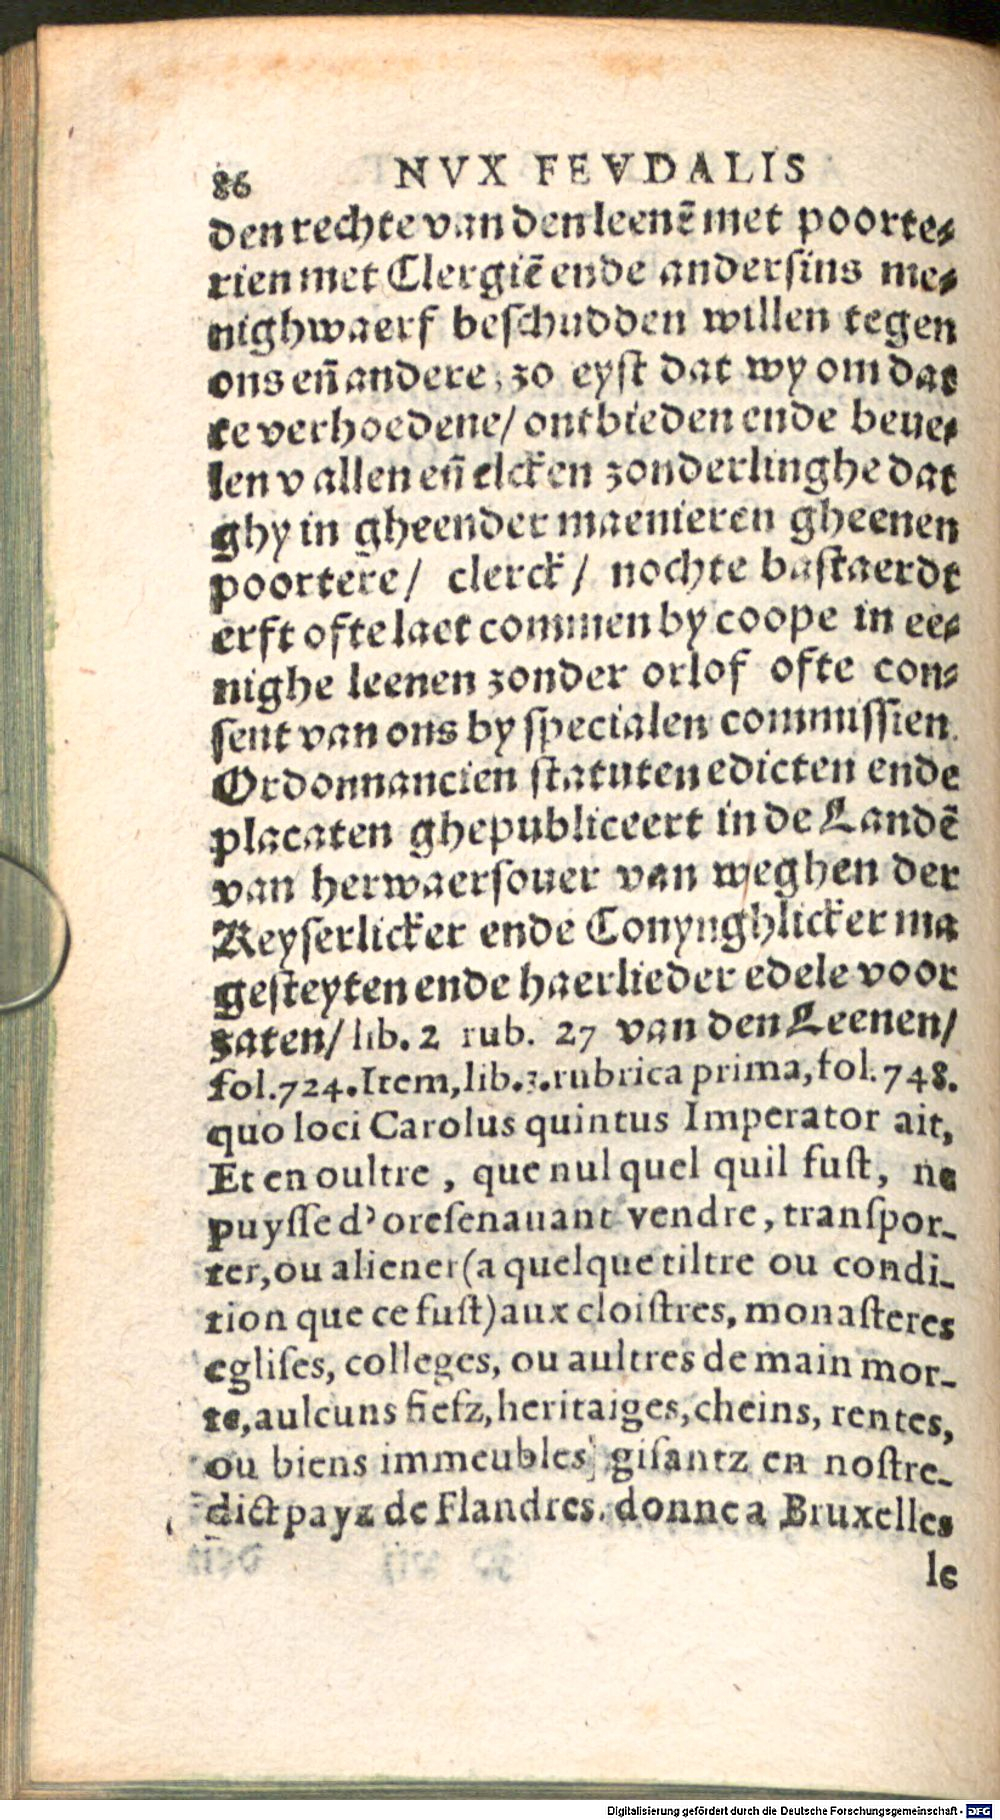 86 NVX FEVDALIS
den rechte van den leenē met poorte⸗
rien met Clergiē ende andersins me⸗
nighwaerf beschudden willen tegen
ons en̄ andere, zo eyst dat wy om dat
te verhoedene/ ontbieden ende beue⸗
len v allen en̄ elcken zonderlinghe dat
ghy in gheender maenieren gheenen
poortere/ clerck/ nochte bastaerdt
erft ofte laet commen by coope in ee⸗
nighe leenen zonder orlof ofte con⸗
sent van ons by specialen commissien.
Ordonnancien statuten edicten ende
placaten ghepubliceert in de Landē
van herwaersouer van weghen der
Keyserlicker ende Conynghlicker ma
gesteyten ende haerlieder edele voor
zaten/ lib. 2 rub. 27 van den Leenen/
fol. 724. Item, lib. 3. rubrica prima, fol. 748.
quo loci Carolus quintus Imperator ait,
Et en oultre, que nul quel quil fust, ne
puysse d'oresenauant vendre, transpor-
ter, ou aliener (a quelque tiltre ou condi-
tion que ce fust) aux cloistres, monasteres
eglises, colleges, ou aultres de main mor-
te, aulcuns fiefz, heritaiges, cheins, rentes,
ou biens immeubles, gisantz en nostre-
dict payz de Flandres. donne a Bruxelles
le
Digitalisierung gefördert durch die Deutsche Forschungsgemeinschaft - DFG